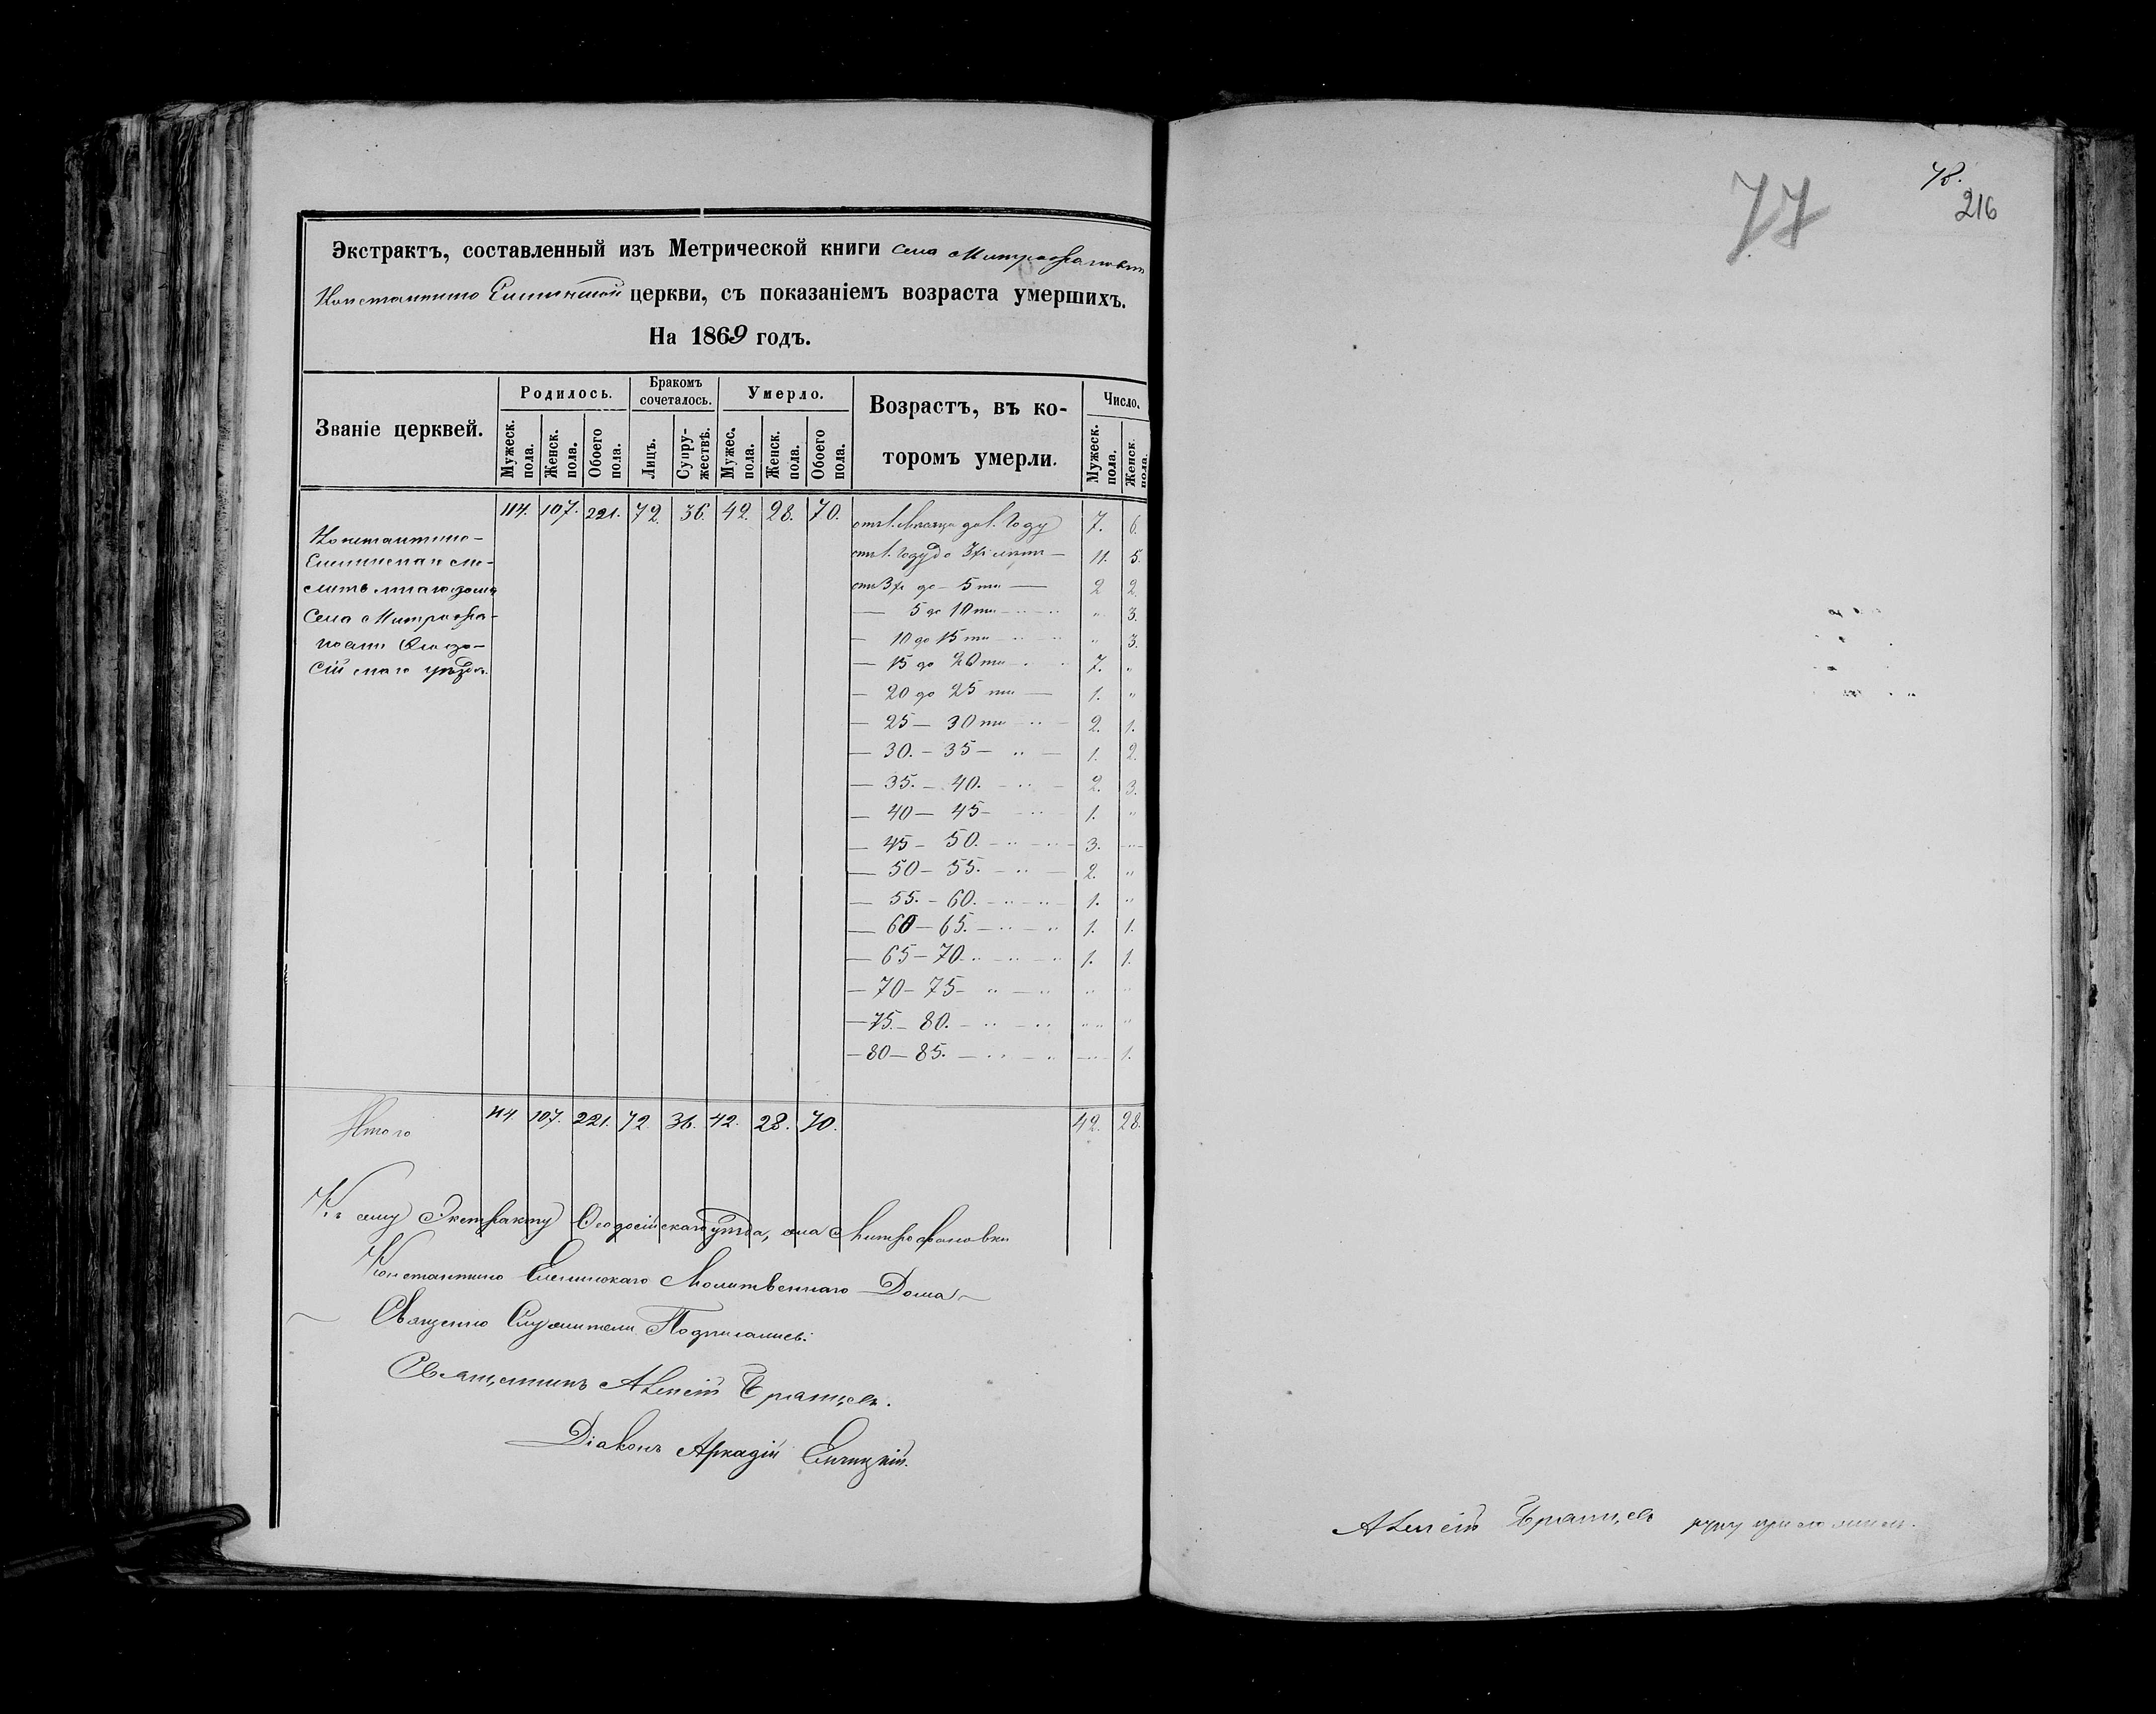 Экстрактъ, составленный изъ Метрической книги села Митрофановки
Константино Еленинской церкви, съ показаніемъ возраста умершихъ.
На 1869 годъ.
Званіе церквей.
Родилось.
Бракомъ сочеталось.
Умерло.
Возрастъ, въ которомъ умерли.
Число.
Мужеск. пола.
Женск. пола.
Обоего пола.
Лицъ.
Супружествѣ.
Мужес. пола.
Женск. пола.
Обоего пола.
Мужеск. пола.
Женск. пола.
114. 107. 221. 72. 36. 42. 28. 70.
Константино-
Еленинскаго мо-
литвеннаго дома
Села Митрофа-
новки Ѳеодо-
сійскаго уѣзда.
отъ 1. Мѣсяца до 1. Году 7. 6.
отъ 1. Году до 3хъ лѣтъ — 11. 5.
отъ 3хъ до — 5 ти — 2 2.
— 5 до 10 ти — " — " " 3.
— 10 до 15 ти — " — " " 3.
— 15 до 20 ти — " — " 7. "
— 20 до 25 ти — 1. "
— 25 — 30 ти — " — 2. 1.
— 30. — 35 — " — 1. 2.
— 35. — 40. — " — 2. 3.
— 40 — 45 — " — 1. "
— 45 — 50. — " — " — 3. — " —
— 50 — 55. — " — 2. "
— 55. — 60. — " — " — 1. "
— 60 — 65. — " — " 1. 1.
— 65 — 70. " — " — " 1. 1.
— 70 — 75 — " — " " "
— 75. — 80. — " — " " " "
— 80 — 85. — " — " — " — 1.
Итого 114. 107. 221. 72. 36. 42. 28. 70. 42. 28.
Къ сему Экстракту Ѳеодосійскаго уѣзда, села Митрофановки
Константино Еленинскаго Молитвеннаго Дома
Священно Служители Подписались:
Священникъ Алексій
Діаконъ Аркадій
77
78.
216
Алексій руку приложилъ.